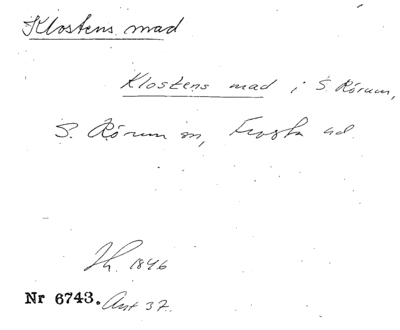 Klostens mad
Klostens mad i S. Rörum,
S. Rörum sn, Frosta hd.
Jh. 1846
Nr 6743. Ant 37.